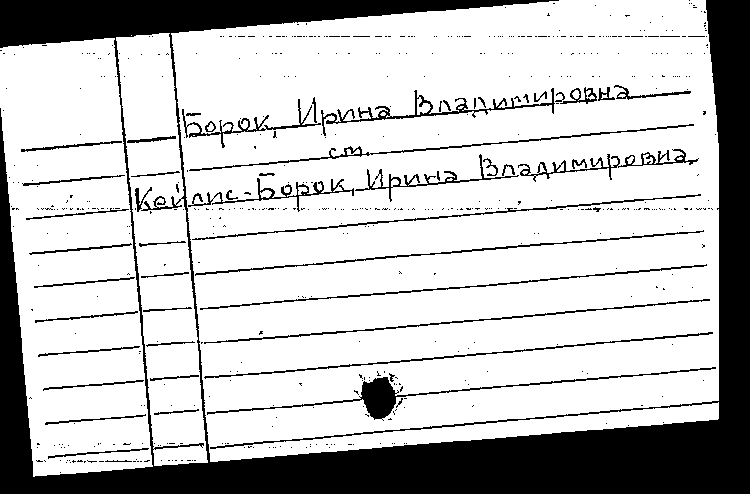 Борок, Ирина Владимировна
см.
Кейлис-Борок, Ирина Владимировна.